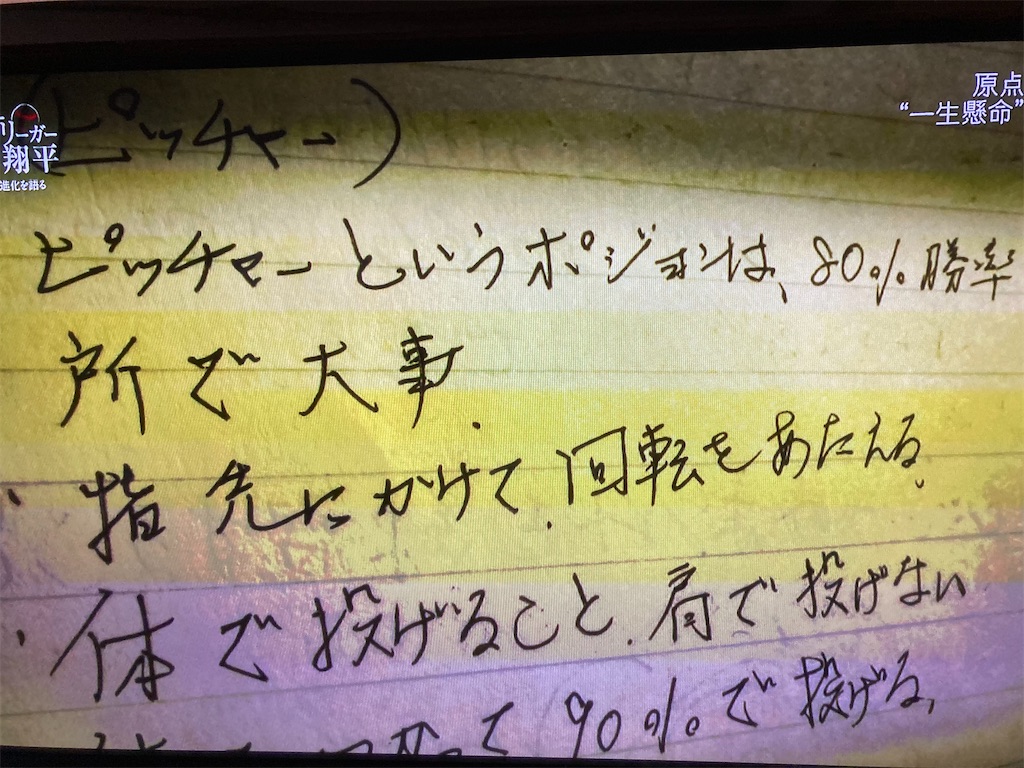 リーガー
翔平
進化を語る
原点
“一生懸命”
(ピッチャー)
ピッチャーというポジョンは、80%勝率
所で大事.
・指先にかけて.回転をあたえる.
・体で投げること.肩で投げない
って90%で投げる,